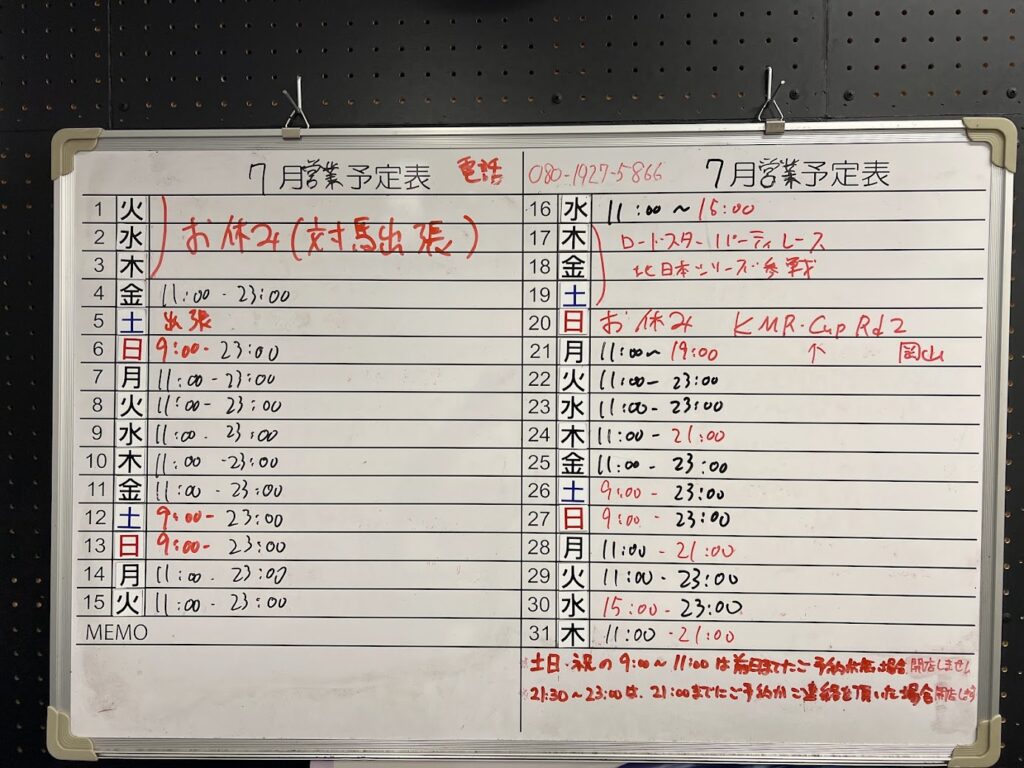 7月営業予定表 電話 080-1927-5866
1 火
2 水 お休み(対馬出張)
3 木
4 金 11:00-23:00
5 土 出張
6 日 9:00-23:00
7 月 11:00-23:00
8 火 11:00-23:00
9 水 11:00-23:00
10 木 11:00-23:00
11 金 11:00-23:00
12 土 9:00-23:00
13 日 9:00-23:00
14 月 11:00-23:00
15 火 11:00-23:00
MEMO
7月営業予定表
16 水 11:00~15:00
17 木 ロードスターパーティレース
18 金 北日本シリーズ参戦
19 土
20 日 お休み KMR-Cup Rd2
21 月 11:00~19:00 ↑ 岡山
22 火 11:00-23:00
23 水 11:00-23:00
24 木 11:00-21:00
25 金 11:00-23:00
26 土 9:00-23:00
27 日 9:00-23:00
28 月 11:00-21:00
29 火 11:00-23:00
30 水 15:00-23:00
31 木 11:00-21:00
土日・祝の9:00~11:00は前日までにご予約無い場合開店しません
21:30~23:00は、21:00までにご予約かご連絡を頂いた場合開店します